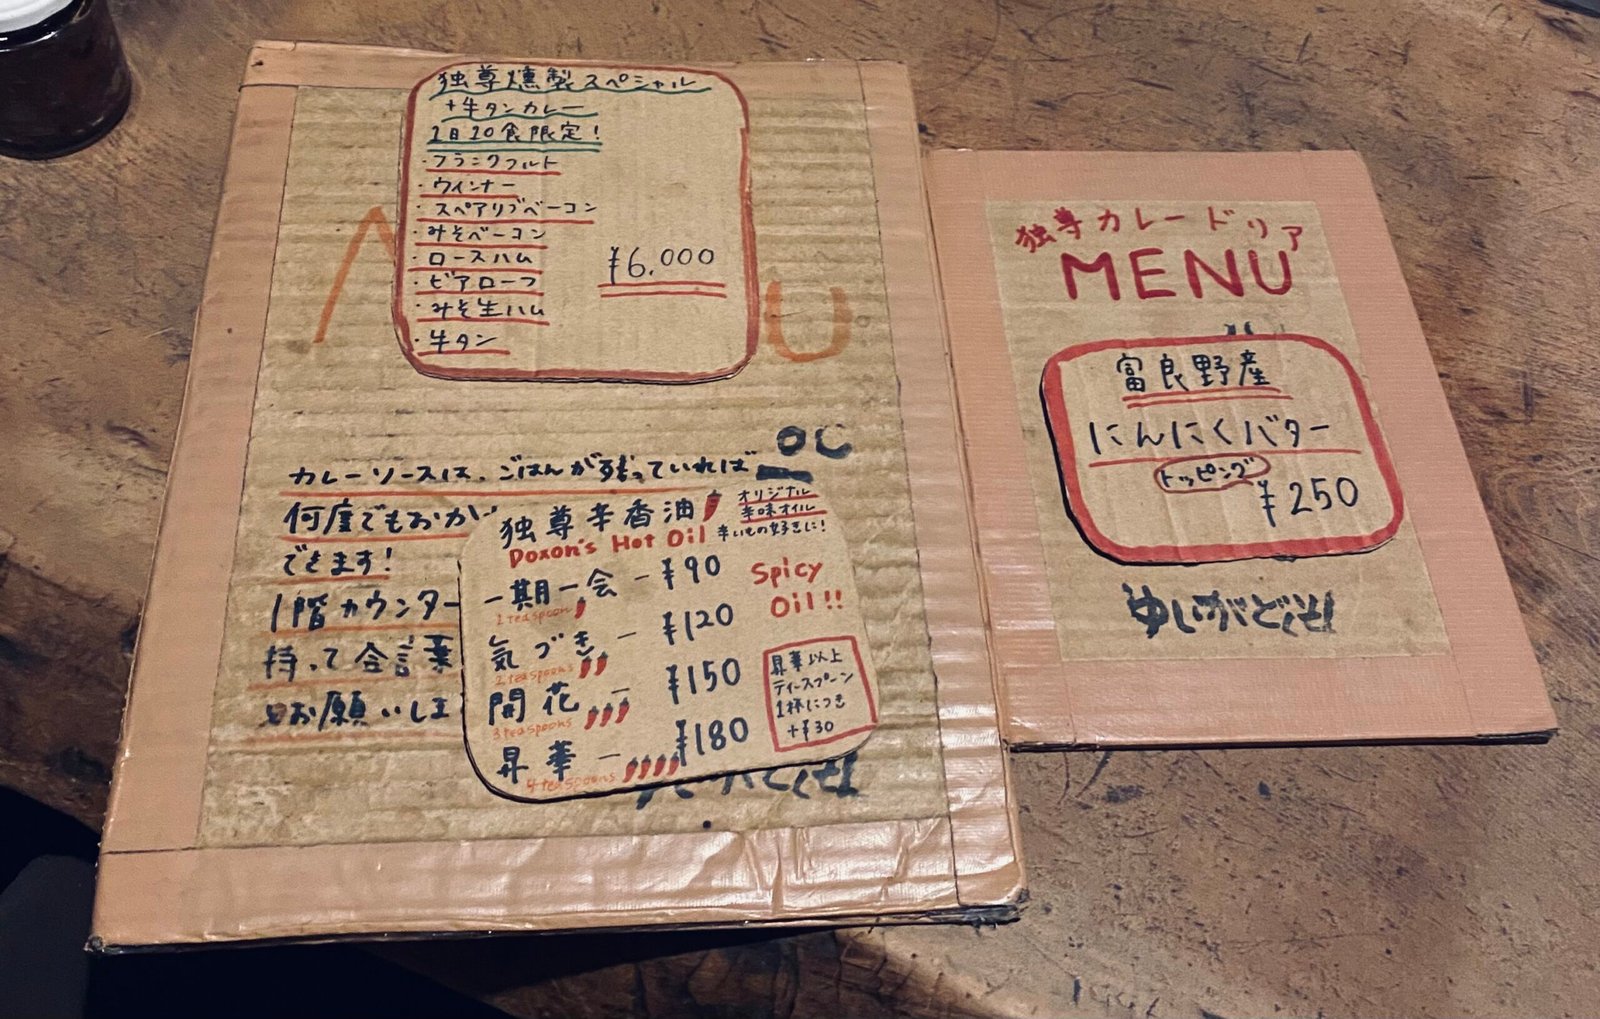 独尊燻製スペシャル
+牛タンカレー
1日20食限定!
・フランクフルト
・ウインナー
・スペアリブベーコン
・みそベーコン
・ロースハム
・ビアローフ
・みそ生ハム
・牛タン
¥6,000
カレーソースは、ごはんが残っていれば
何度でもおか
できます!
1階カウンター
持って合言葉
お願いしま
独尊辛香油
オリジナル
辛味オイル
辛いもの好きに!
Doxon's Hot Oil
一期一会 - ¥90
1 teaspoon
気づき - ¥120
2 teaspoons
開花 - ¥150
3 teaspoons
昇華 - ¥180
4 teaspoons
Spicy
Oil!!
昇華以上
ティースプーン
1杯につき
+¥30
独尊カレードリア
MENU
富良野産
にんにくバター
トッピング
¥250
ゆいがどくそん